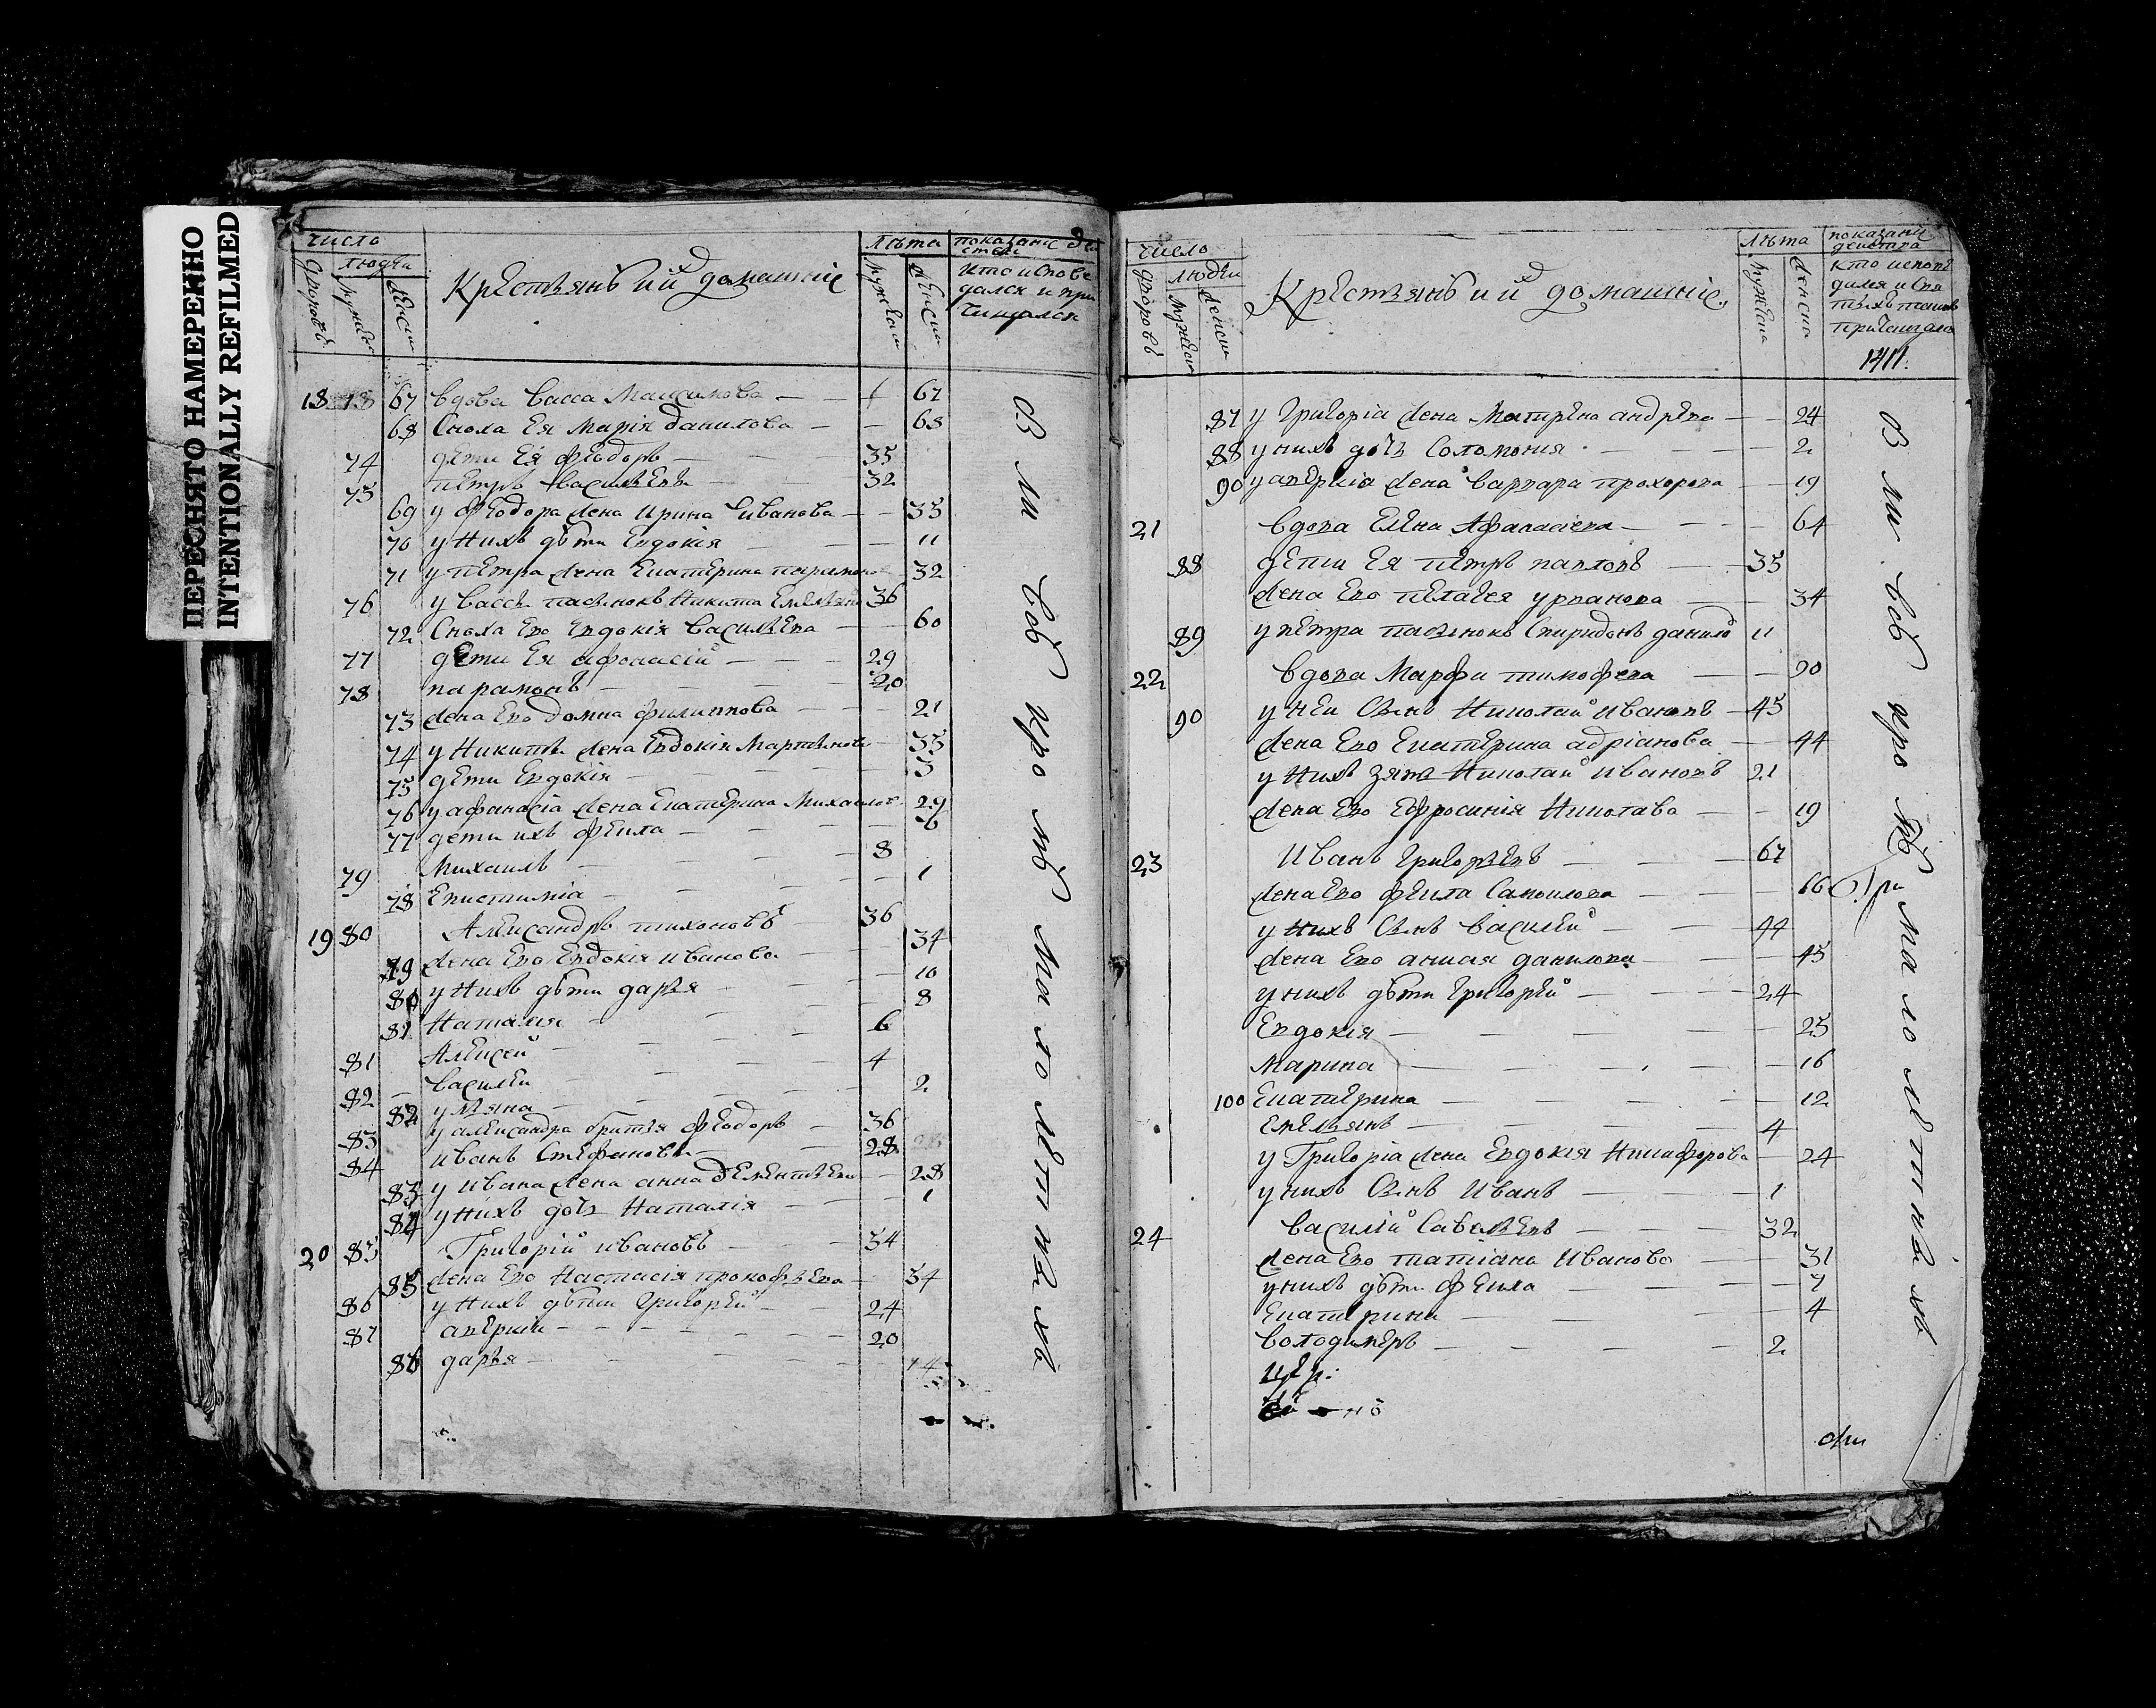 ПЕРЕСНЯТО НАМЕРЕННО
INTENTIONALLY REFILMED
число
людей
дворовъ
мужска
женска
Крестьянъ и ихъ домашние
лѣта
мужска
женска
показание действ
кто испове
дался и при
чащался
18 67 вдова васса Максимова — — 67
68 Сноха Ея Марія данилова — — 68
74 дети Ея Феодоръ — 35
75 петръ васильевъ 32
69 у Феодора жена Ирина Иванова — — 33
70 у нихъ дѣти Евдокія — — 11
71 у петра жена Екатерина парамоно 32
76 у вассы пасынокъ Никита Емельяно 36
72 Сноха Ево Евдокія васильева — — 60
77 дети Ея афонасій — — — 29
78 парамонъ — 20
73 жена Ево домна филиппова — — — 21
74 у Никиты жена Евдокія Мартынова 33
75 дети Евдокія — 3
76 у афанасіа жена Екатерина Михаилов 29
77 дети ихъ фекла — 6
79 Михаилъ — 8
78 Епистимiа — 1
19 80 Александръ тихоновъ 36
79 жена Ево Евдокія иванова — 34
80 у нихъ дѣти дарья — 10
81 Наталия — 8
81 Алексей — 6
82 василеи — 4
82 ульяна — 2
83 у александра братья феодоръ — 36
84 иванъ Стефановы — 28
83 у ивана жена анна дементьева — 28
84 у нихъ дочь Наталія — 1
20 85 Григорій ивановъ — 34
85 жена Ево Настасія прокофьева — 34
86 у нихъ дѣти Григорей — 24
87 аверкии — 20
86 дарья — 14
вси въ уро нѣ мало летныхъ
число
людеи
дворовъ
мужска
женска
Крестьянъ и ихъ домашніе
лѣта
мужска
женска
показание
действа
кто испове
дался и Свя
тыхъ таинъ
причащался
1411.
87 у Григоріа жена Матрена андрева — 24
88 у нихъ дочь Соломония — 2
90 у аверкіа жена варвара прохорова — 19
21 вдова Елена Афанасіева — 64
88 дети Ея петръ павловъ — 35
жена Ево пелагея урванова — 34
89 у петра пасынокъ Спиридонъ данило 11
22 вдова Марфа тимофева — 90
90 у неи Сынъ Николай ивановъ — 45
жена Ево Екатерина адріанова — 44
у нихъ зять Николай ивановъ 21
жена Ево Ефросинія Николава — 19
23 Иванъ Григорьевъ — 67
жена Ево фекла Самоилова — 66
у нихъ Сынъ василей — 44
жена Ево анисия данилова — 45
у нихъ дѣти Григорей — 24
Евдокія — 25
Марина — 16
100 Екатерина — 12
Емельянъ — 4
у Григоріа жена Евдокія Никифорова — 24
у нихъ Сынъ Иванъ — 1
24 василій Савельевъ — 32
жена Ево татіана Иванова — 31
у нихъ дѣти фекла — 7
Екатерина — 4
володимеръ — 2
вси въ уро нѣ мало летныхъ